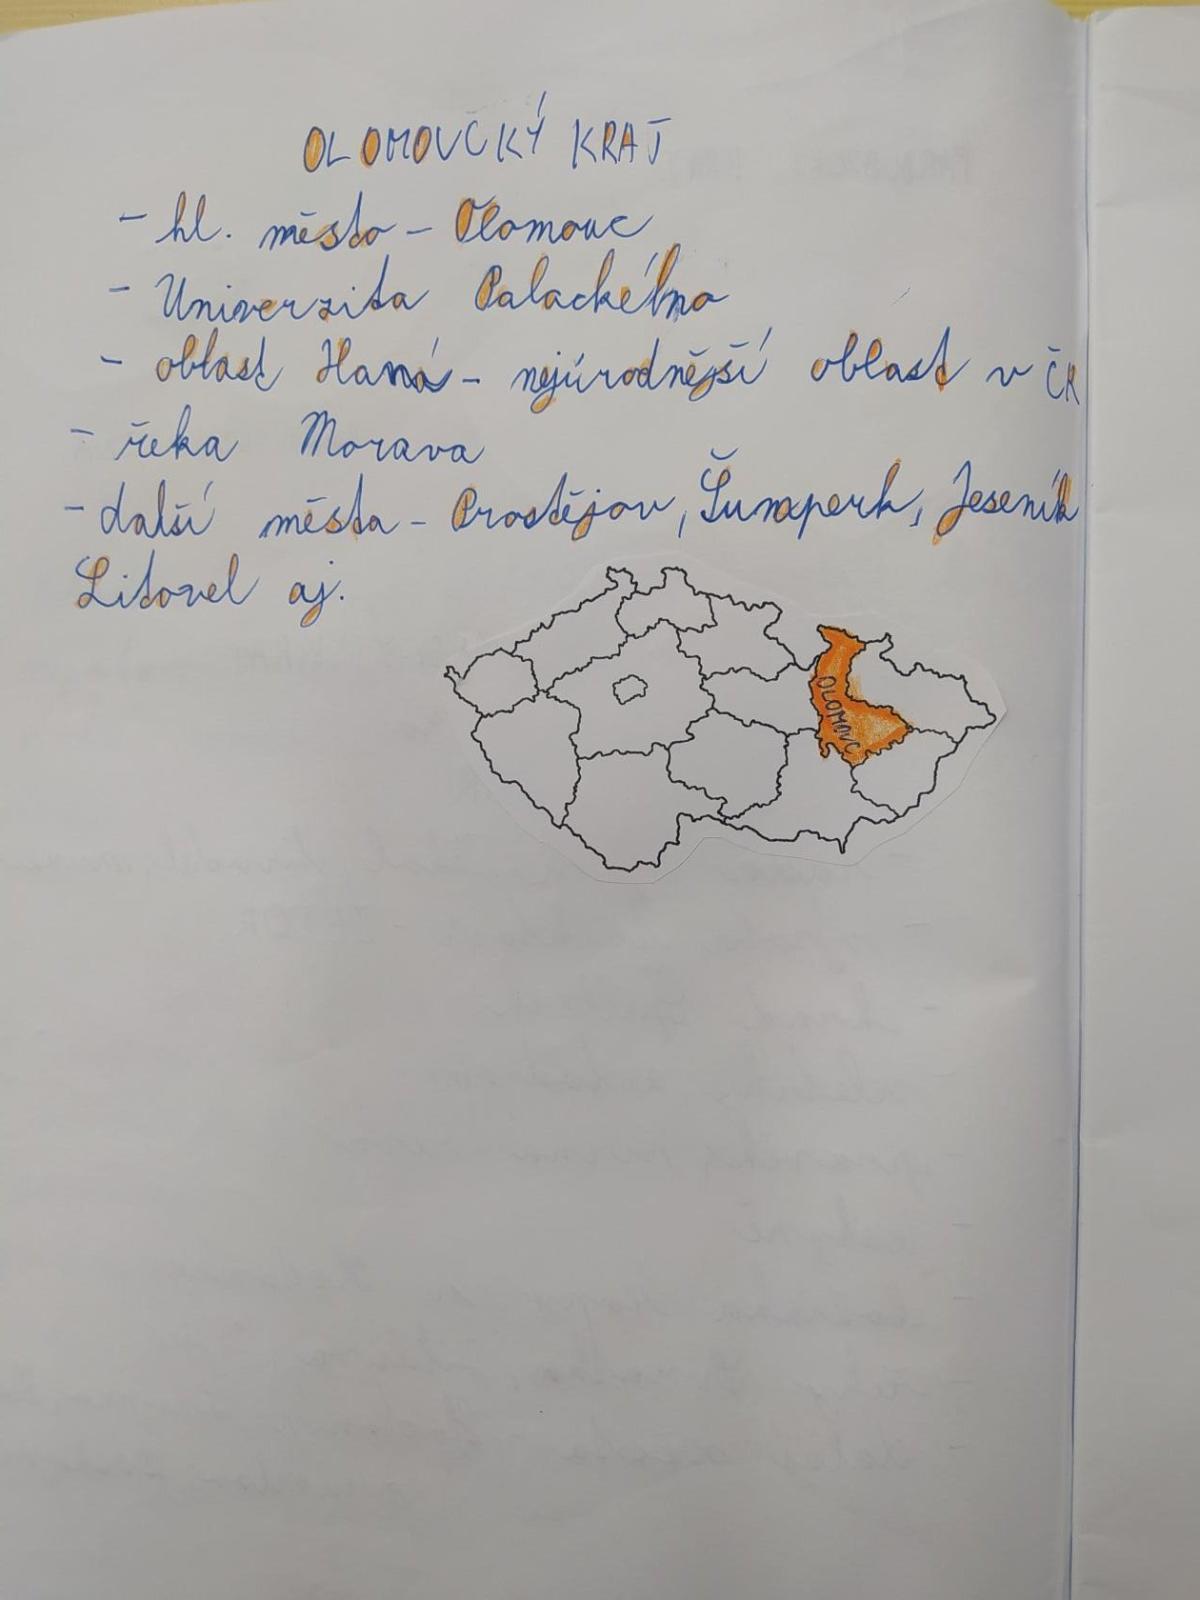 OLOMOUCKÝ KRAJ
- hl. město - Olomouc
- Univerzita Palackého
- oblast Haná - nejúrodnější oblast v ČR
- řeka Morava
- další města - Prostějov, Šumperk, Jeseník
Litovel aj.
OLOMOUC